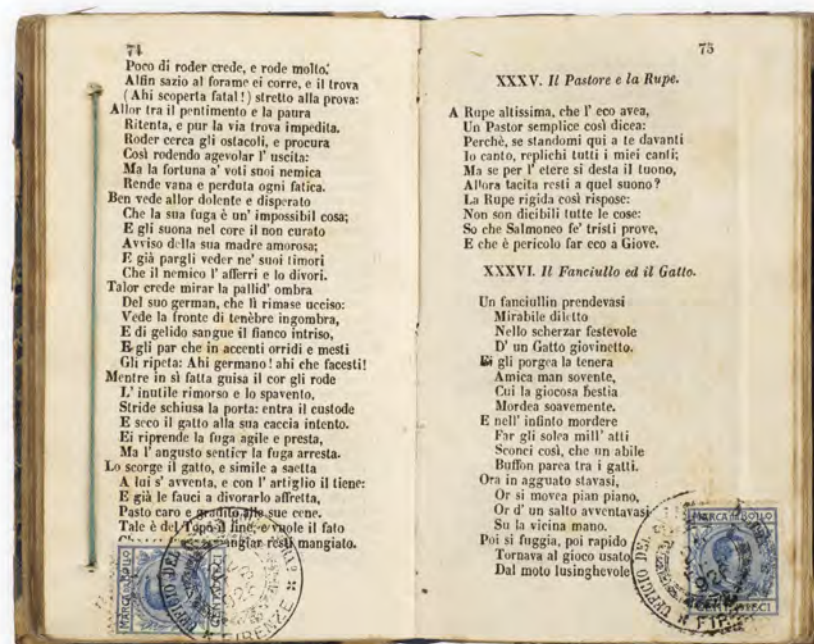 74
Poco di roder crede, e rode molto.
Alfin sazio al forame ei corre, e il trova
(Ahi scoperta fatal!) stretto alla prova:
Allor tra il pentimento e la paura
Ritenta, e pur la via trova impedita.
Roder cerca gli ostacoli, e procura
Così rodendo agevolar l' uscita:
Ma la fortuna a' voti suoi nemica
Rende vana e perduta ogni fatica.
Ben vede allor dolente e disperato
Che la sua fuga è un' impossibil cosa;
E gli suona nel core il non curato
Avviso della sua madre amorosa;
E già pargli veder ne' suoi timori
Che il nemico l' afferri e lo divori.
Talor crede mirar la pallid' ombra
Del suo german, che lì rimase ucciso:
Vede la fronte di tenèbre ingombra,
E di gelido sangue il fianco intriso,
E gli par che in accenti orridi e mesti
Gli ripeta: Ahi germano! ahi che facesti!
Mentre in sì fatta guisa il cor gli rode
L' inutile rimorso e lo spavento,
Stride schiusa la porta: entra il custode
E seco il gatto alla sua caccia intento.
Ei riprende la fuga agile e presta,
Ma l' angusto sentier la fuga arresta.
Lo scorge il gatto, e simile a saetta
A lui s' avventa, e con l' artiglio il tiene:
E già le fauci a divorarlo affretta,
Pasto caro e gradito alle sue cene.
Tale è del Topo il fine, e vuole il fato
resti mangiato.
UFFICIO DEL
FIRENZE
MARCA DA BOLLO
75
XXXV. Il Pastore e la Rupe.
A Rupe altissima, che l' eco avea,
Un Pastor semplice così dicea:
Perchè, se standomi qui a te davanti
Io canto, replichi tutti i miei canti;
Ma se per l' etere si desta il tuono,
Allora tacita resti a quel suono?
La Rupe rigida così rispose:
Non son dicibili tutte le cose:
So che Salmoneo fe' tristi prove,
E che è pericolo far eco a Giove.
XXXVI. Il Fanciullo ed il Gatto.
Un fanciullin prendevasi
Mirabile diletto
Nello scherzar festevole
D' un Gatto giovinetto.
Ei gli porgea la tenera
Amica man sovente,
Cui la giocosa bestia
Mordea soavemente.
E nell' infinto mordere
Far gli solea mill' atti
Sconci così, che un abile
Buffon parea tra i gatti.
Ora in agguato stavasi,
Or si movea pian piano,
Or d' un salto avventavasi
Su la vicina mano.
Poi si fuggia, poi rapido
Tornava al gioco usato,
Dal moto lusinghevole
UFFICIO DEL
MARCA DA BOLLO